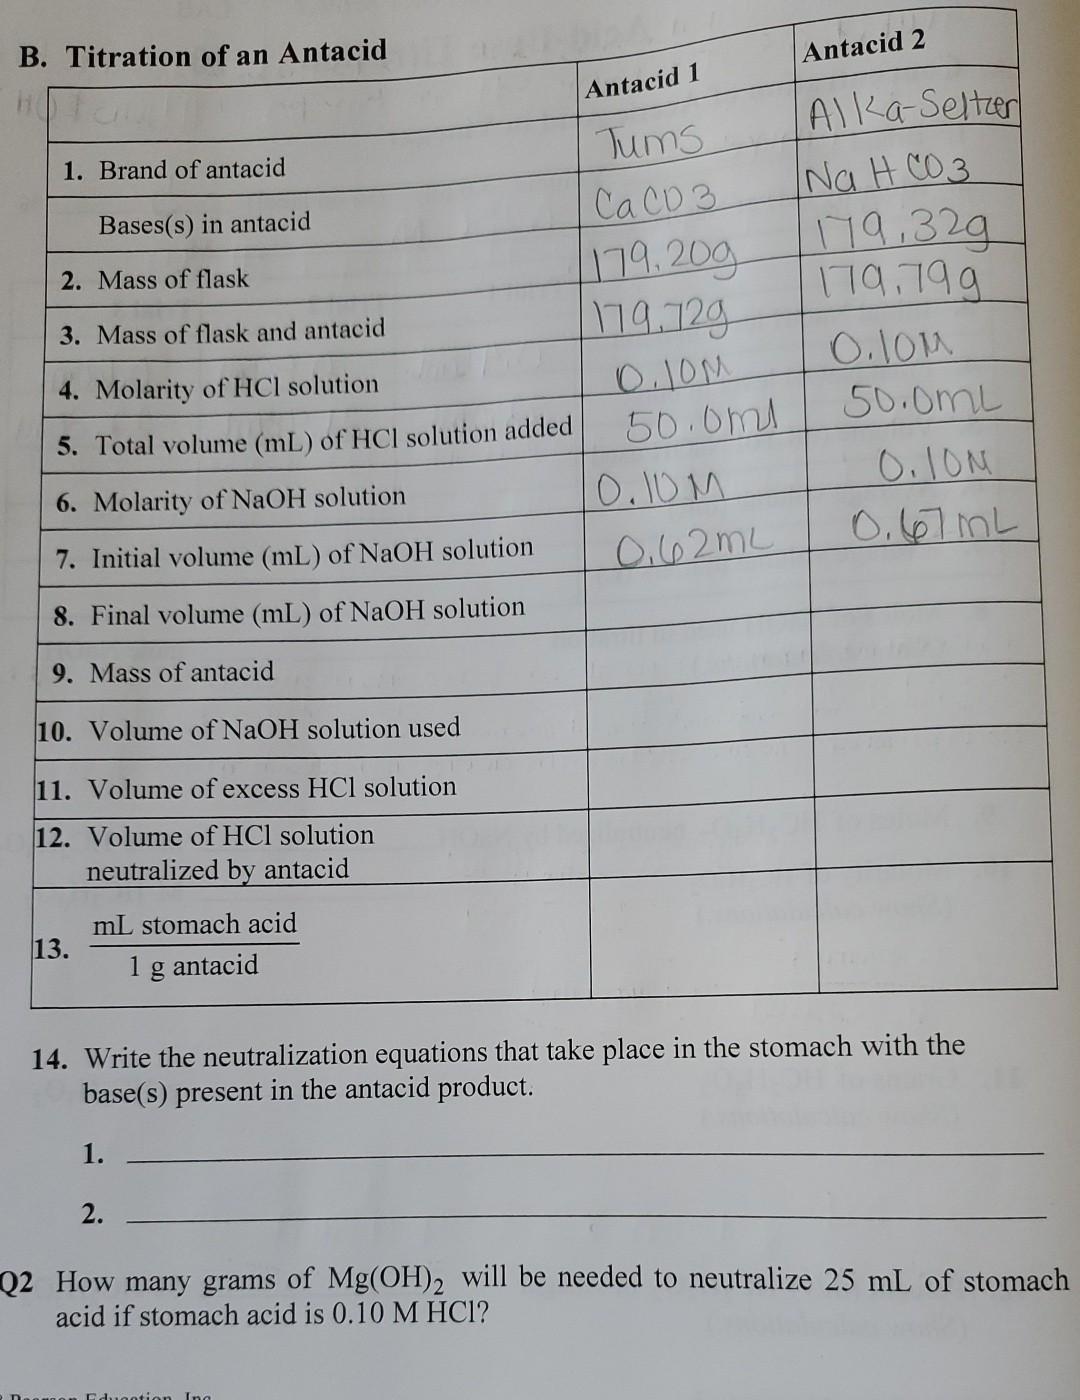 B. Titration of an Antacid
Antacid 1 Antacid 2
1. Brand of antacid Tums Alka-Seltzer
Bases(s) in antacid CaCO3 NaHCO3
2. Mass of flask 179.20g 179.32g
3. Mass of flask and antacid 179.72g 179.79g
4. Molarity of HCl solution 0.10M 0.10M
5. Total volume (mL) of HCl solution added 50.0ml 50.0mL
6. Molarity of NaOH solution 0.10M 0.10M
7. Initial volume (mL) of NaOH solution 0.62mL 0.67mL
8. Final volume (mL) of NaOH solution
9. Mass of antacid
10. Volume of NaOH solution used
11. Volume of excess HCl solution
12. Volume of HCl solution
neutralized by antacid
13. mL stomach acid
1 g antacid
14. Write the neutralization equations that take place in the stomach with the
base(s) present in the antacid product.
1.
2.
Q2 How many grams of Mg(OH)₂ will be needed to neutralize 25 mL of stomach
acid if stomach acid is 0.10 M HCl?
Pearson Education, Inc.